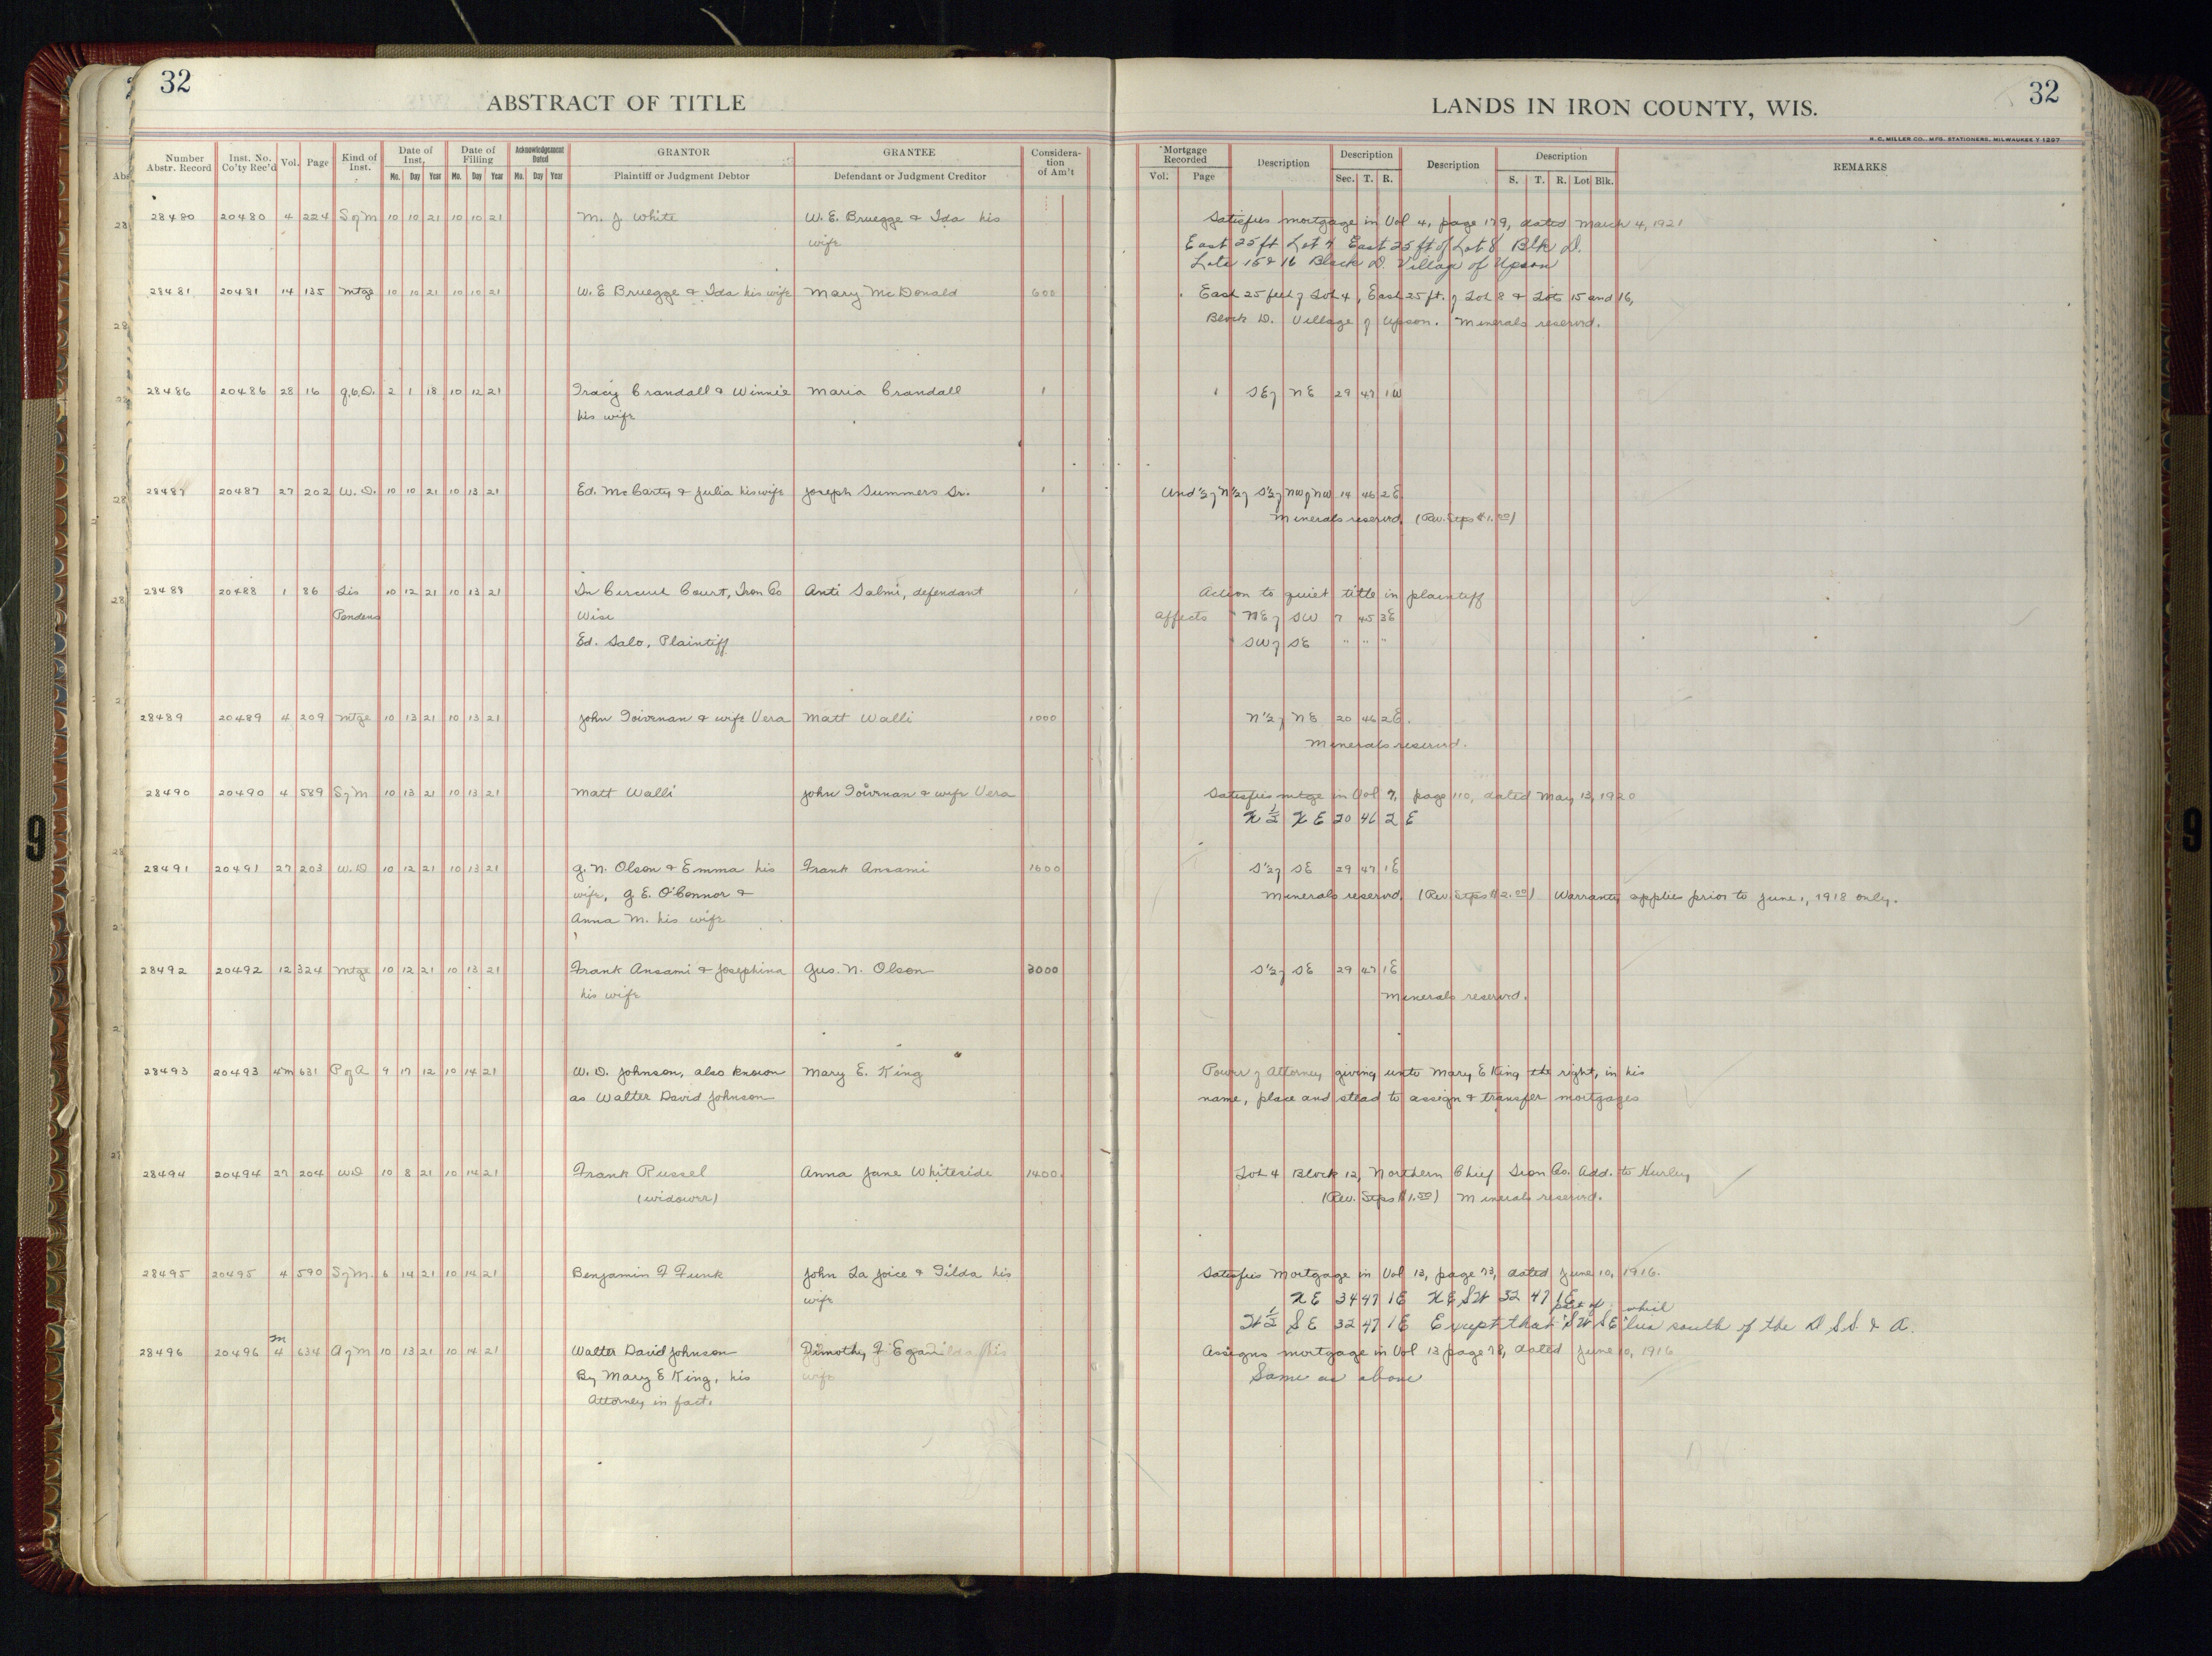 32
ABSTRACT OF TITLE
LANDS IN IRON COUNTY, WIS.
32
H. C. MILLER CO., MFG. STATIONERS, MILWAUKEE
Number Abstr. Record | Inst. No. Co'ty Rec'd | Vol. | Page | Kind of Inst. | Date of Inst. Mo. Day Year | Date of Filling Mo. Day Year | Acknowledgement Dated Mo. Day Year | GRANTOR Plaintiff or Judgment Debtor | GRANTEE Defendant or Judgment Creditor | Consideration of Am't | Mortgage Recorded Vol. Page | Description | Description Sec. T. R. | Description | Description S. T. R. Lot Blk. | REMARKS
28480 20480 4 224 S of M 10 10 21 10 10 21 M. J. White W. E. Bruegge & Ida his Satisfies mortgage in Vol 4, page 179, dated March 4, 1921
wife East 25 ft Lot 4 East 25 ft of Lot 8 Blk D.
Lots 15 & 16 Block D. Village of Upson
28481 20481 14 135 Mtge 10 10 21 10 10 21 W. E Bruegge & Ida his wife Mary McDonald 600 East 25 feet of Lot 4, East 25 ft. of Lot 8 & Lots 15 and 16,
Block D. Village of Upson. Minerals reserved.
28486 20486 28 16 Q.C.D. 2 1 18 10 12 21 Tracy Crandall & Winnie Maria Crandall 1 SE of NE 29 47 1W
his wife
28487 20487 27 202 W. D. 10 10 21 10 13 21 Ed. McCarty & Julia his wife Joseph Summers Sr. 1 Und ½ of N½ of S½ of NW of NW 14 46 2E
Minerals reserved. (Rev. Stps $1.00)
28488 20488 1 86 Lis 10 12 21 10 13 21 In Circuit Court, Iron Co Anti Salmi, defendant Action to quiet title in plaintiff
Pendens Wisc affects NE of SW 7 45 3E
Ed. Salo, Plaintiff SW of SE " " "
28489 20489 4 209 Mtge 10 13 21 10 13 21 John Toivonan & wife Vera Matt Walli 1000 N½ of NE 20 46 2E.
Minerals reserved.
28490 20490 4 589 S of M 10 13 21 10 13 21 Matt Walli John Toivonan & wife Vera Satisfies mtge in Vol 7, page 110, dated May 13, 1920
N ½ N E 20 46 2 E
28491 20491 27 203 W. D 10 12 21 10 13 21 G. N. Olson & Emma his Frank Ansami 1600 S½ of SE 29 47 1E
wife, G. E. O'Connor & Minerals reserved. (Rev Stps $2.00) Warranty applies prior to June 1, 1918 only.
Anna M. his wife
28492 20492 12 324 Mtge 10 12 21 10 13 21 Frank Ansami & Josephina Gus. N. Olson 3000 S½ of SE 29 47 1E
his wife Minerals reserved.
28493 20493 4m 631 P of A 9 17 12 10 14 21 W. D. Johnson, also known Mary E. King Power of Attorney giving unto Mary E King the right, in his
as Walter David Johnson name, place and stead to assign & transfer mortgages
28494 20494 27 204 WD 10 8 21 10 14 21 Frank Russel Anna Jane Whiteside 1400. Lot 4 Block 12, Northern Chief Iron Co. Add. to Hurley
(widower) (Rev. Stps $1.50) Minerals reserved.
28495 20495 4 590 S of M. 6 14 21 10 14 21 Benjamin F Funk John La Joice & Tilda his Satisfies Mortgage in Vol 13, page 73, dated June 10, 1916.
wife N E 34 47 1E N E SW 32 47 1E
part of which
W ½ S E 32 47 1E Except that SW SE lies south of the D S S. & A.
28496 20496 4 m 634 A of M 10 13 21 10 14 21 Walter David Johnson Timothy F Egan Assigns mortgage in Vol 13 page 78, dated June 10, 1916
By Mary E King, his wife Same as above
Attorney in fact.
9
9